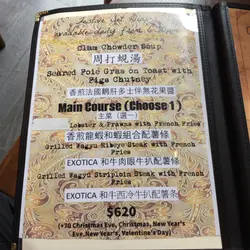 Clam Chowder Soup
周打蜆湯
Seared Foie Gras on Toast with
Figs Chutney
香煎法國鵝肝多士伴無花果醬
Main Course (Choose 1)
主菜 (選一)
Lobster & Prawns with French Fries
香煎龍蝦和蝦組合配薯條
Grilled Wagyu Ribeye Steak with French
Fries
EXOTICA 和牛肉眼牛扒配薯條
Grilled Wagyu Striploin Steak with French
Fries
EXOTICA 和牛西冷牛扒配薯条
$620
(+70 Christmas Eve, Christmas, New Year's
Eve, New Year's, Valentine's Day)